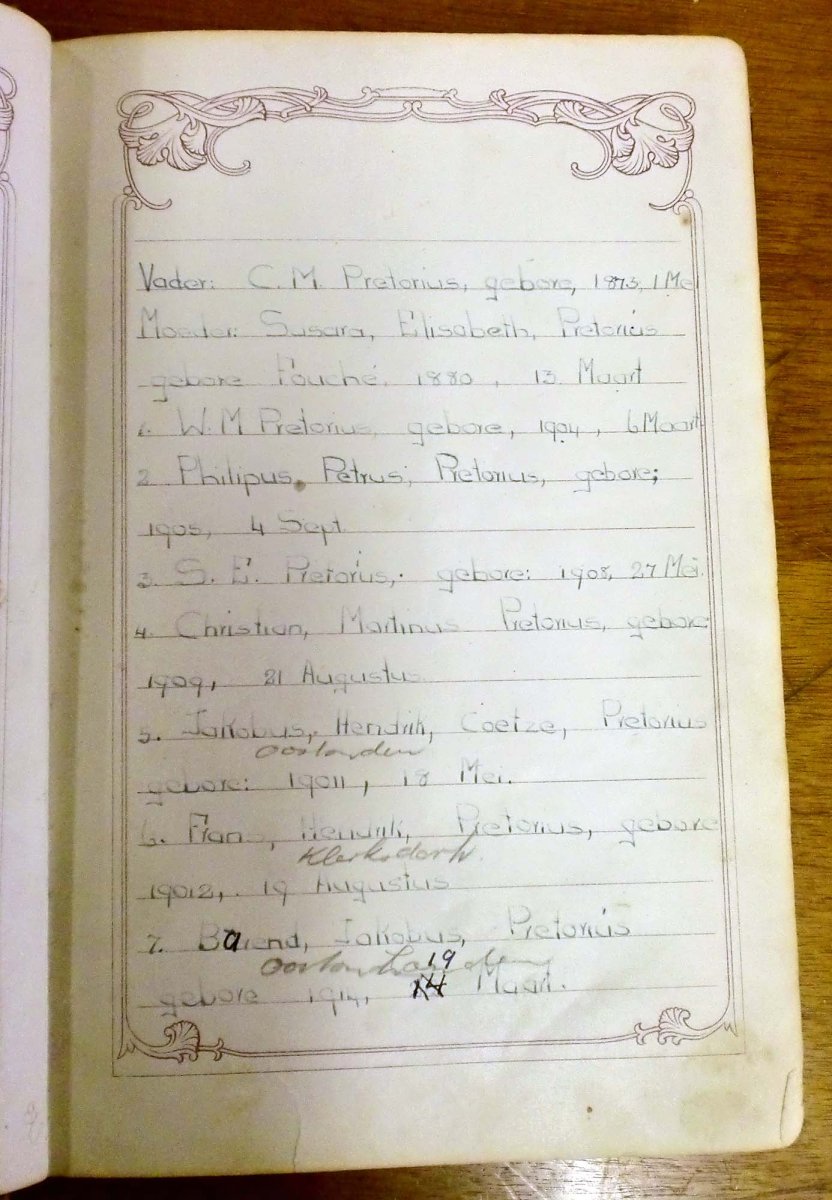 Vader: C. M. Pretorius, gebore, 1873, 1 Mei
Moeder: Susara, Elisabeth, Pretorius
gebore Fouché. 1880, 13 Maart
1. W. M Pretorius, gebore, 1904, 6 Maart
2 Philipus, Petrus, Pretorius, gebore;
1905, 4 Sept.
3. S. E. Pretorius, gebore: 1908, 27 Mei.
4. Christian, Martinus Pretorius, gebore
1909, 21 Augustus
5. Jakobus, Hendrik, Coetze, Pretorius
gebore: 19011, 18 Mei.
6. Frans, Hendrik, Pretorius, gebore
Klerksdorp.
19012, 19 Augustus
7. Barend, Jakobus, Pretorius
19
gebore 1914, 14 Maart.